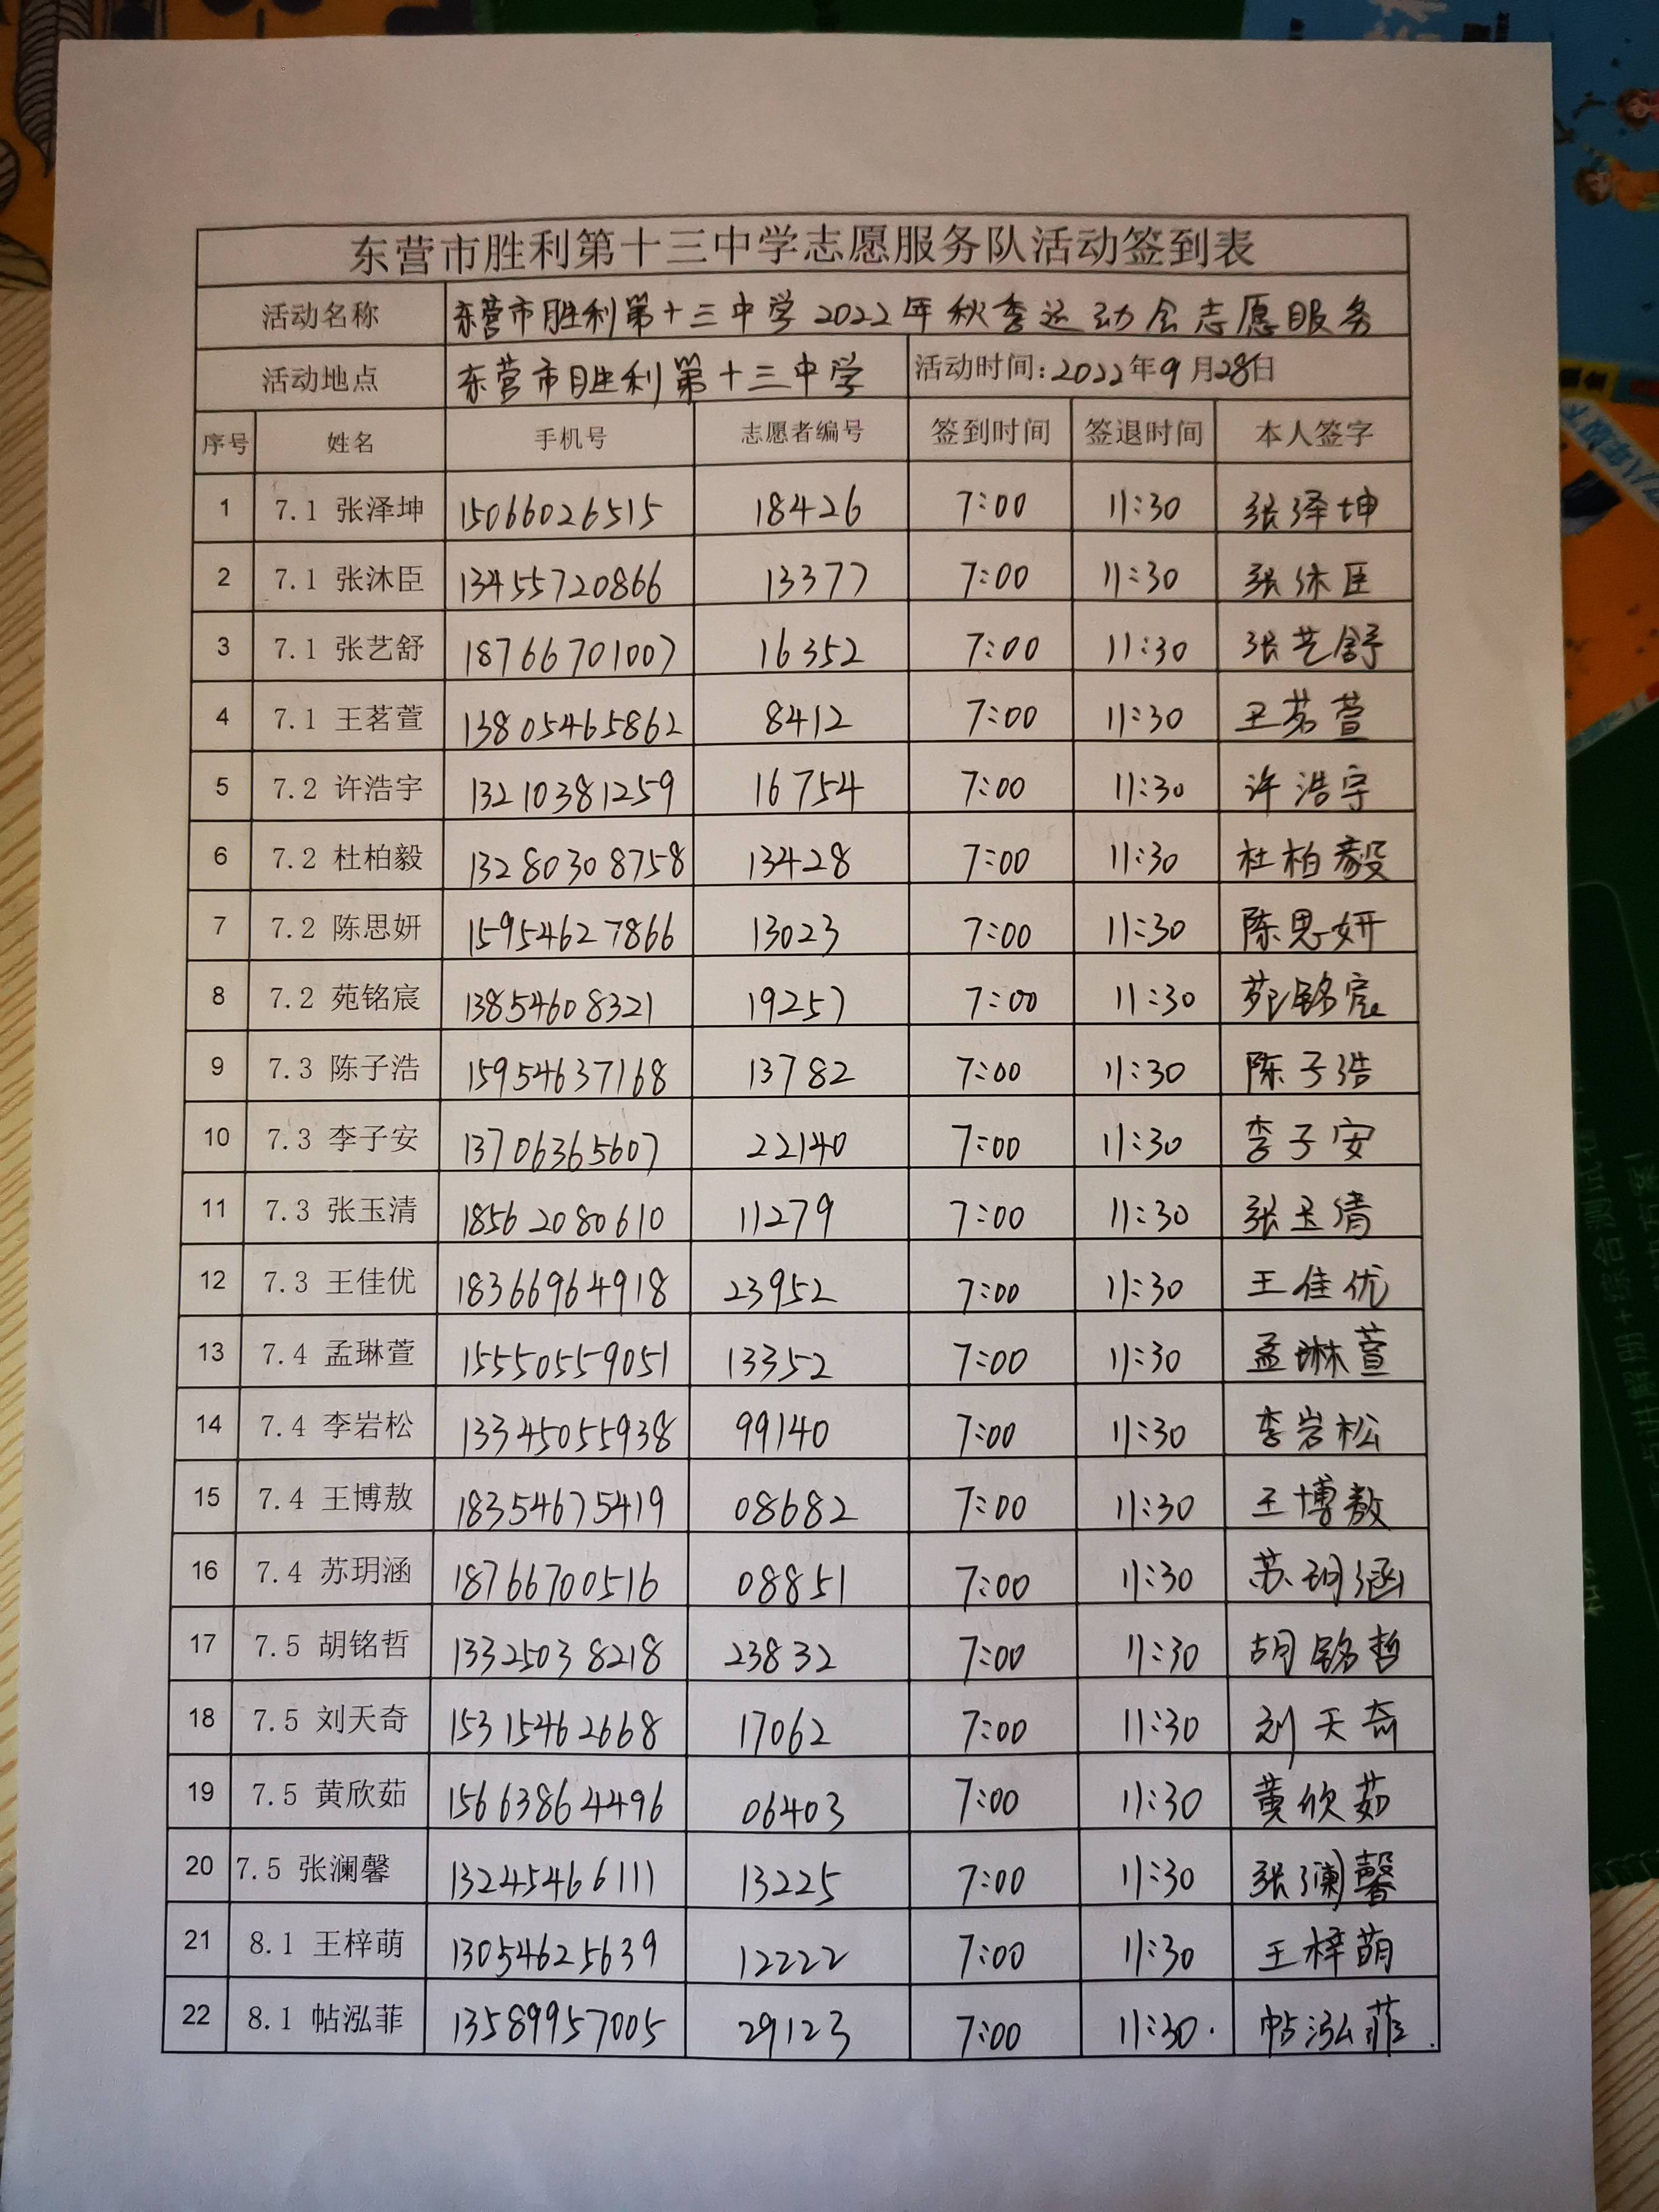 东营市胜利第十三中学志愿服务队活动签到表
活动名称 东营市胜利第十三中学2022年秋季运动会志愿服务
活动地点 东营市胜利第十三中学 活动时间:2022年9月28日
序号 姓名 手机号 志愿者编号 签到时间 签退时间 本人签字
1 7.1 张泽坤 15066026515 18426 7:00 11:30 张泽坤
2 7.1 张沐臣 13455720866 13377 7:00 11:30 张沐臣
3 7.1 张艺舒 18766701007 16352 7:00 11:30 张艺舒
4 7.1 王茗萱 13805465862 8412 7:00 11:30 王茗萱
5 7.2 许浩宇 13210381259 16754 7:00 11:30 许浩宇
6 7.2 杜柏毅 13280308758 13428 7:00 11:30 杜柏毅
7 7.2 陈思妍 15954627866 13023 7:00 11:30 陈思妍
8 7.2 苑铭宸 13854608321 19257 7:00 11:30 苑铭宸
9 7.3 陈子浩 15954637168 13782 7:00 11:30 陈子浩
10 7.3 李子安 13706365607 22140 7:00 11:30 李子安
11 7.3 张玉清 18562080610 11279 7:00 11:30 张玉清
12 7.3 王佳优 18366964918 23952 7:00 11:30 王佳优
13 7.4 孟琳萱 15550559051 13352 7:00 11:30 孟琳萱
14 7.4 李岩松 13345055938 99140 7:00 11:30 李岩松
15 7.4 王博敖 18354675419 08682 7:00 11:30 王博敖
16 7.4 苏玥涵 18766700516 08851 7:00 11:30 苏玥涵
17 7.5 胡铭哲 13325038218 23832 7:00 11:30 胡铭哲
18 7.5 刘天奇 15315462668 17062 7:00 11:30 刘天奇
19 7.5 黄欣茹 15663864496 06403 7:00 11:30 黄欣茹
20 7.5 张澜馨 13245466111 13225 7:00 11:30 张澜馨
21 8.1 王梓萌 13054625639 12222 7:00 11:30 王梓萌
22 8.1 帖泓菲 13589957005 29123 7:00 11:30. 帖泓菲.